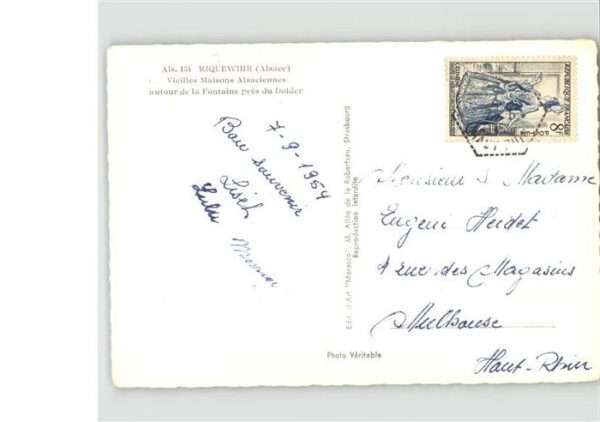 Als. 154 RIQUEWIHR (Alsace)
Vieilles Maisons Alsaciennes
autour de la Fontaine près du Dolder
7-9-1954
Bon souvenir
Lisel
Lulu
REPUBLIQUE FRANÇAISE
8F
Monsieur & Madame
Eugène
4 rue des Magasins
Mulhouse
Haut-Rhin
Edit. d'Art "Marasco" 68, Allée de la Robertsau, Strasbourg
Reproduction interdite
Photo Véritable